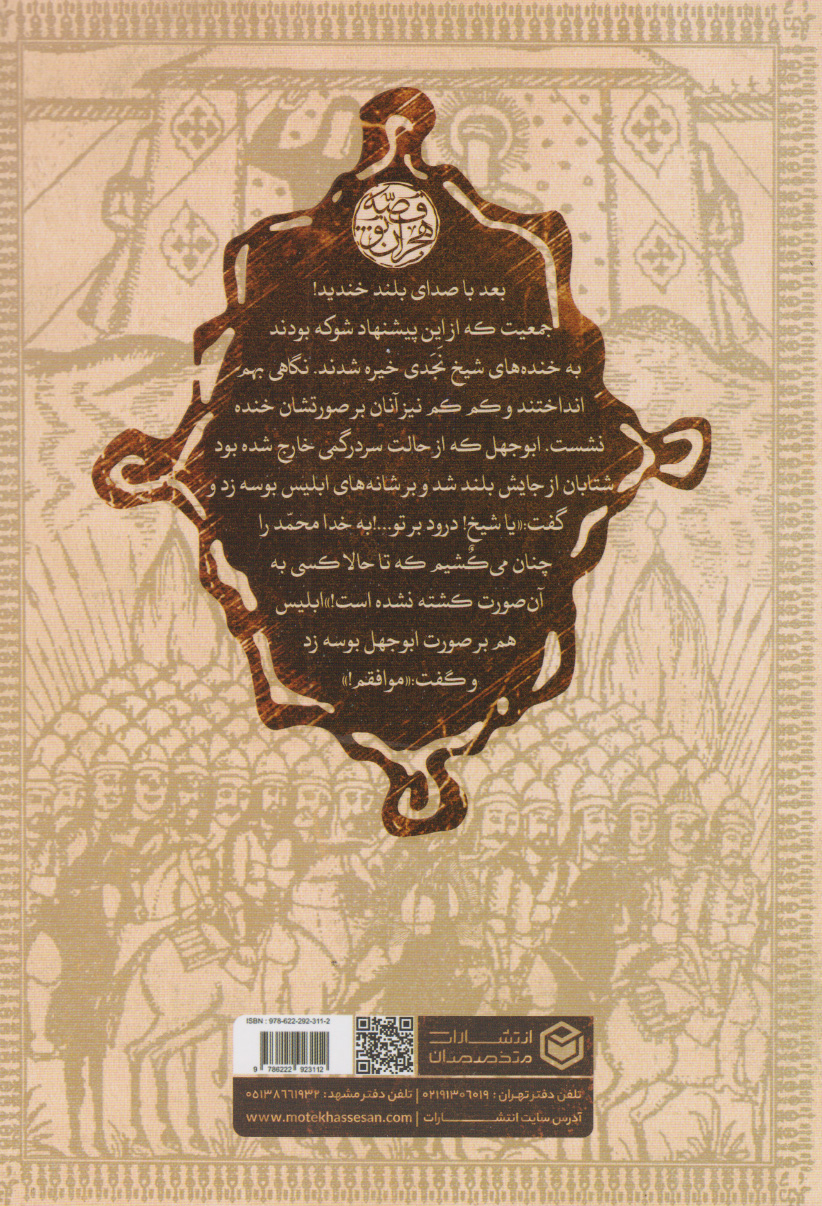 قصّه
هجران تو...
بعد با صدای بلند خندید!
جمعیت که از این پیشنهاد شوکه بودند
به خنده‌های شیخ نَجَدی خْیره شدند. نگاهی بهم
انداختند و کم کم نیز آنان بر صورتشان خنده
نشست. ابوجهل که از حالت سردرگمی خارج شده بود
شتابان از جایش بلند شد و بر شانه‌های ابلیس بوسه زد و
گفت:«یا شیخ! درود بر تو...!به خدا محمّد را
چنان می‌کُشیم که تا حالا کسی به
آن‌صورت کشته نشده است!»ابلیس
هم بر صورت ابوجهل بوسه زد
و گفت:«موافقم!»
ISBN : 978-622-292-311-2
9 786222 923112
انتشارات
متخصصان
تلفن دفتر تهران : ۰۲۱۹۱۳۰۶۰۱۹ | تلفن دفتر مشهد: ۰۵۱۳۸۶۶۱۹۳۲
آدرس سایت انتشــــــــارات | www.motekhassesan.com